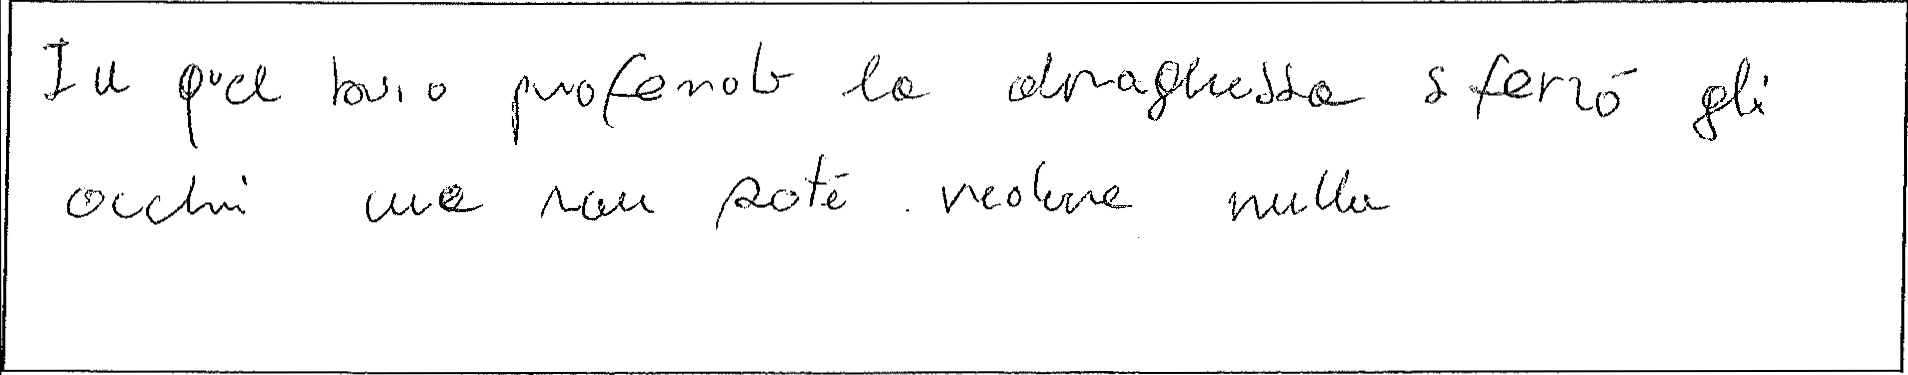 In quel buio profondo la draghessa sferzò gli
occhi ma non poté vedere nulla